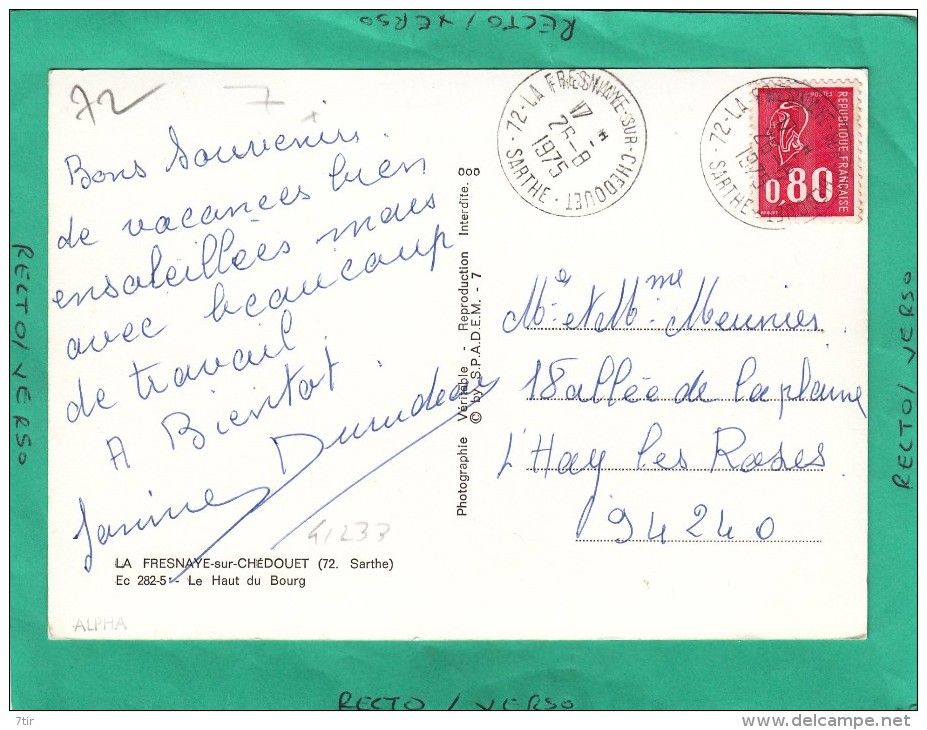 RECTO / VERSO
72
7
Bons Souvenirs
de vacances bien
ensoleillées mais
avec beaucoup
de travail.
A Bientot.
Janine
41233
LA FRESNAYE-sur-CHÉDOUET (72. Sarthe)
Ec 282-5 - Le Haut du Bourg
ALPHA
Photographie Véritable - Reproduction Interdite.
© by S.P.A.D.E.M. - 7
72-LA FRESNAYE-SUR-CHEDOUET
17 H
26-8
1975
SARTHE
72-LA
SARTHE
POSTES
REPUBLIQUE FRANÇAISE
0,80
Mr et Mme Meunier.
18 allée de la plaine
L'Hay les Roses
94240
RECTO / VERSO
RECTO / VERSO
RECTO / VERSO
7tir
delcampe.net